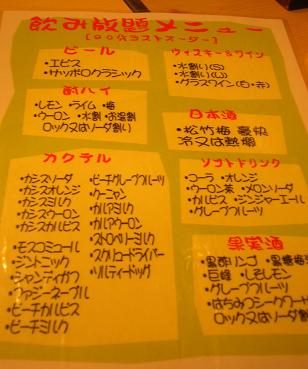 飲み放題メニュー
[90分ラストオーダー]
ビール
・エビス
・サッポロクラシック
酎ハイ
・レモン・ライム・梅
・ウーロン・水割・お湯割
ロック又はソーダ割い
カクテル
・カシスソーダ
・カシスオレンジ
・カシスミルク
・カシスウーロン
・カシスカルピス
・モスコミュール
・ジントニック
・シャンディガフ
・ファジーネーブル
・ピーチカルピス
・ピーチミルク
・ピーチグレープフルーツ
・クーニャン
・カルアミルク
・カルアウーロン
・ストロベリーミルク
・スクリュードライバー
・ソルティードッグ
ウィスキー&ワイン
・水割い(S)
・水割い(W)
・グラスワイン(白・赤)
日本酒
・松竹梅 豪快
冷又は熱燗
ソフトドリンク
・コーラ ・オレンジ
・ウーロン茶 ・メロンソーダ
・カルピス ・ジンジャーエール
・グレープフルーツ
果実酒
・黒酢リンゴ ・黒糖梅
・巨峰 ・しそレモン
・グレープフルーツ
・はちみつシークワー
ロック又はソーダ割